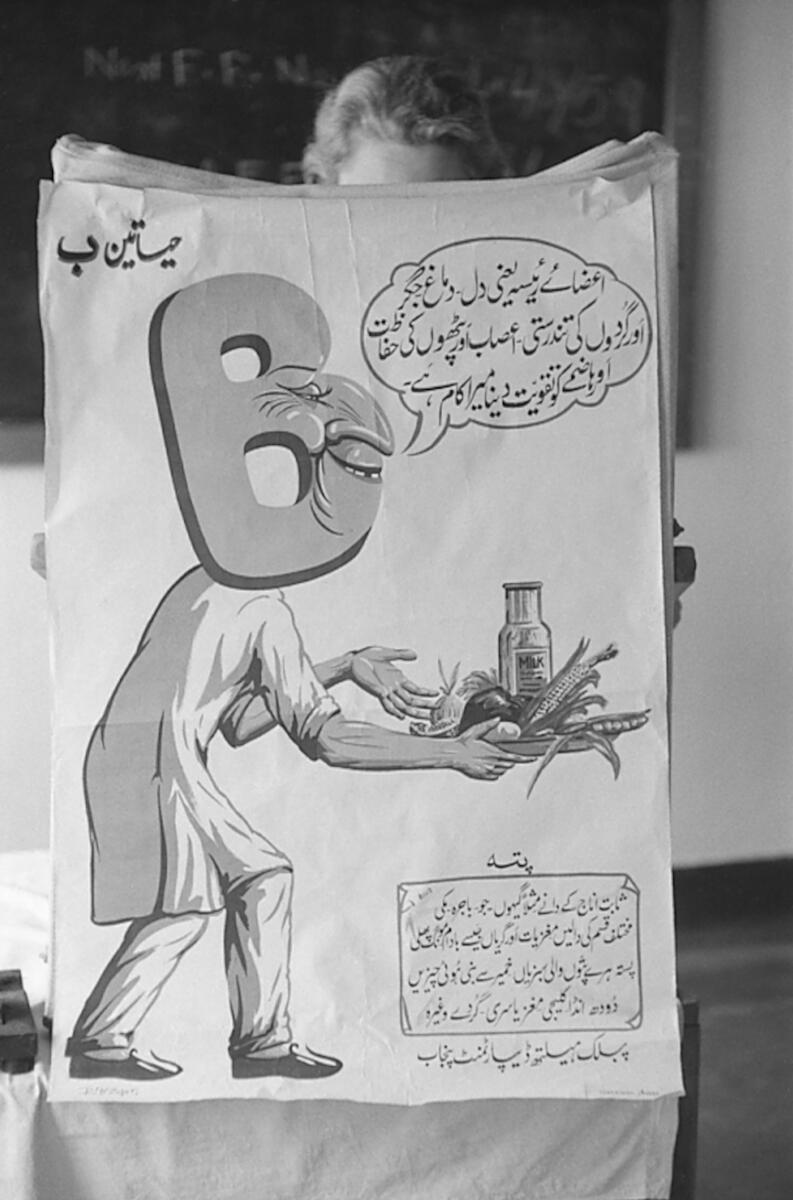 حیاتین ب
اعضائے رئیسہ یعنی دل۔ دماغ جگر
اور گردوں کی تندرستی۔ اعصاب اور پٹھوں کی حفاظت
اور ہاضمے کو تقویت دینا میرا کام ہے۔
B
MILK
پتہ
ثابت اناج کے دانے مثلاً گیہوں۔ جو۔ باجرہ۔ مکی
مختلف قسم کی دالیں مغزیات اور گریاں جیسے بادام مونگ پھلی
پستہ ہرے پتوں والی سبزیاں خمیر سے بنی ہوئی چیزیں
دودھ انڈا کلیجی مغز یا سری۔ گردے وغیرہ
پبلک ہیلتھ ڈیپارٹمنٹ پنجاب